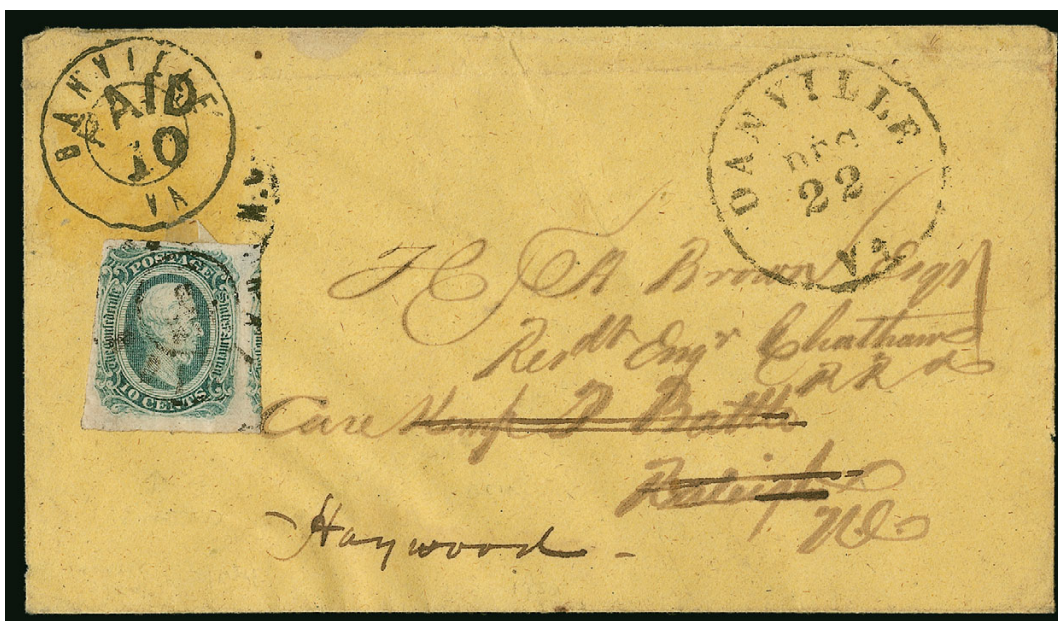 DANVILLE
PAID
10
VA
DANVILLE
DEC
22
Va
POSTAGE
The Confederate States of America
10 CENTS
H A Brown Esqr
Resdt Engr Chatham
R R
Care Kemp P Battle
Raleigh
NC
Haywood